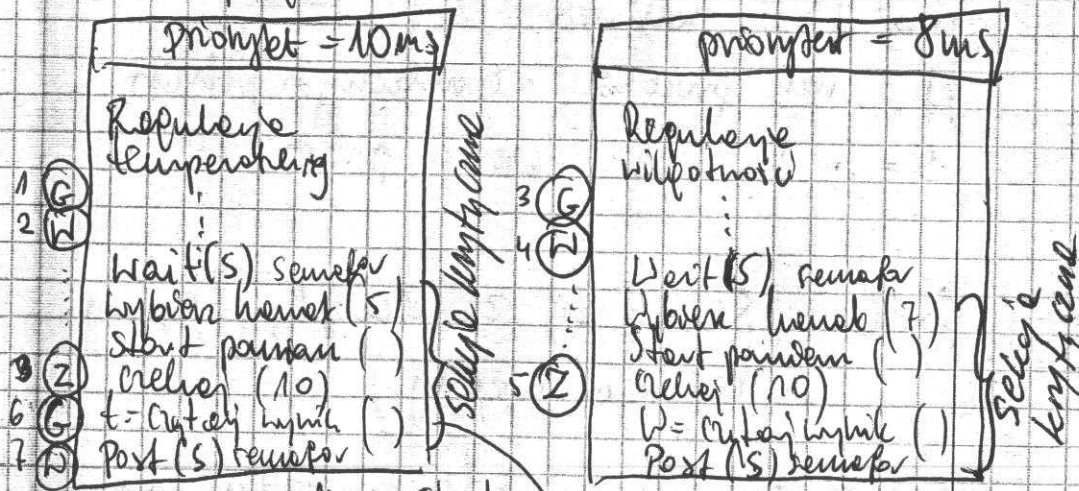 priorytet = 10 ms
Regulacja
temperatury
1 G
2 W
Wait(S) semafor
Wybierz kanał (5)
Start pomiaru ( )
Z czekaj (10)
6 G t = czytaj wynik ( )
7 W Post (S) semafor
Sekcja krytyczna
priorytet = 8 ms
Regulacja
wilgotności
3 G
4 W
Wait (S) semafor
Wybierz kanał (7)
Start pomiaru ( )
5 Z czekaj (10)
W = czytaj wynik ( )
Post (S) semafor
Sekcja
krytyczna